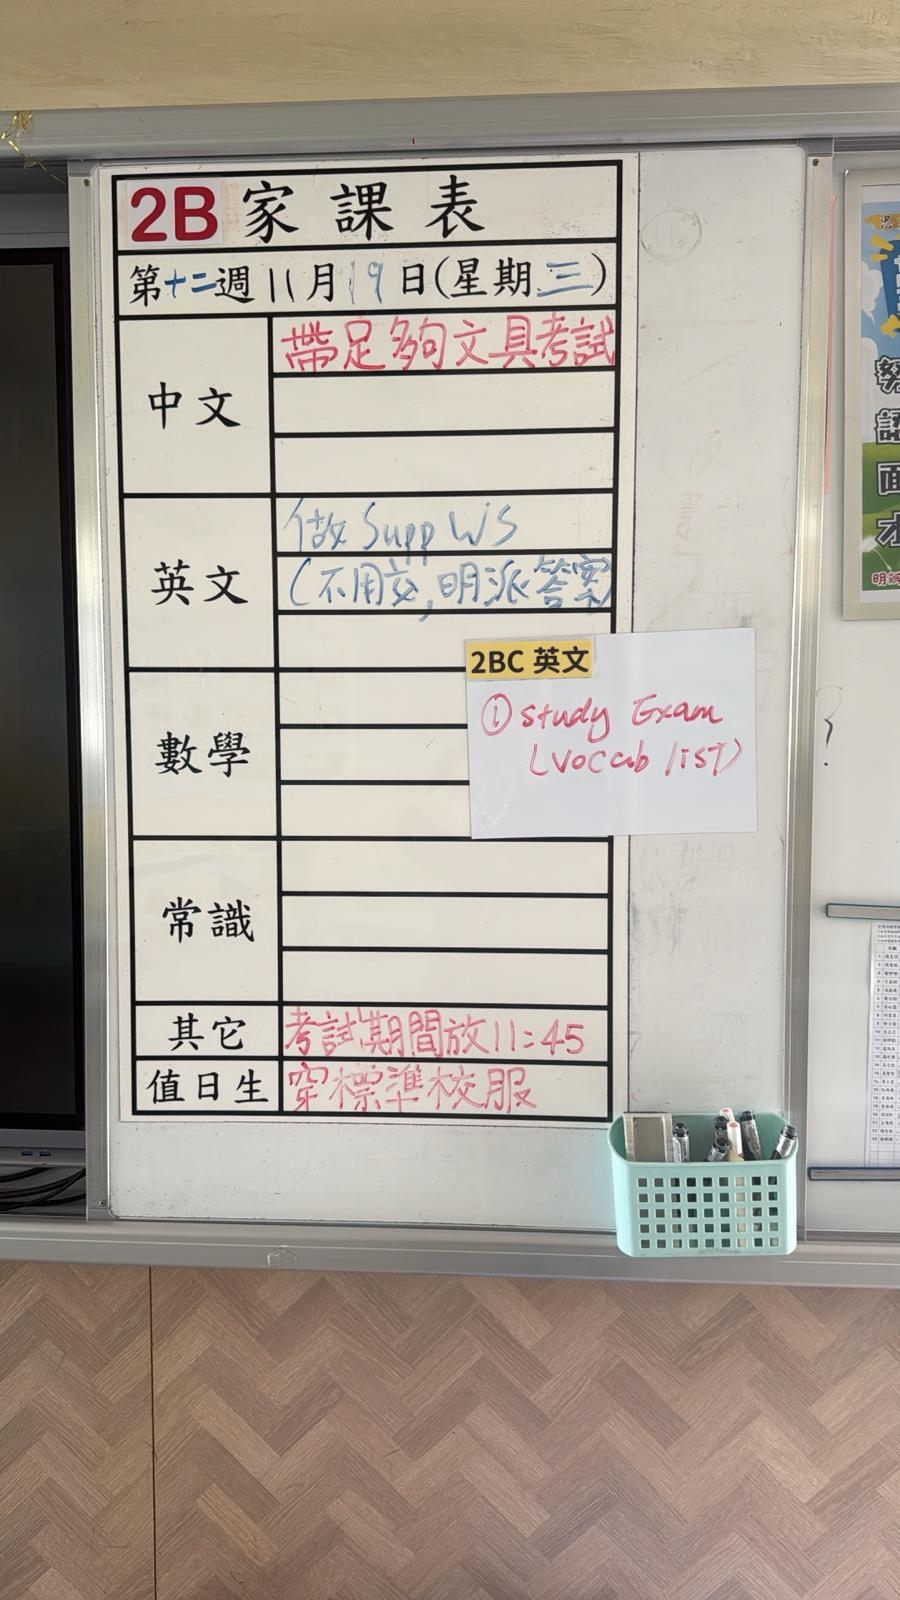 2B 家課表
第十二週11月19日(星期三)
中文
帶足夠文具考試
英文
做 Supp WS
(不用交,明派答案)
2BC 英文
① study Exam
(vocab list)
數學
常識
其它
考試期間放11:45
值日生
穿標準校服